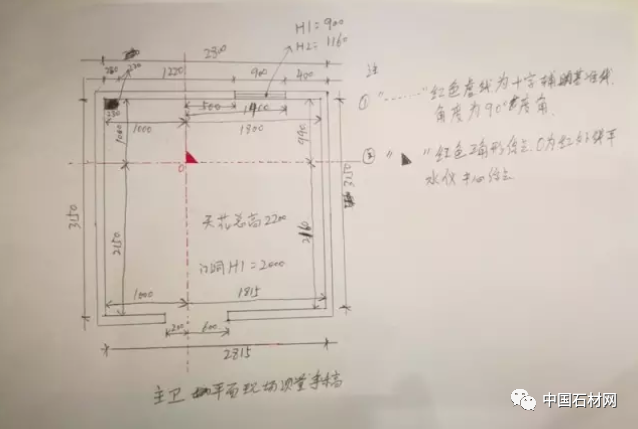 H1=900
H2=1160
2800
1220
900
400
注
① "……" 红色虚线为十字辅助基准线,
角度为90°直角.
② " " 红色三角形位点, O为红外线平
水仪中心位点
500
1400
1000
1800
1000
990
O
3150
2150
天花总高2200
门洞H1=2000
2160
3150
1000
1815
200
600
2815
主卫 平面现场测量手稿
中国石材网